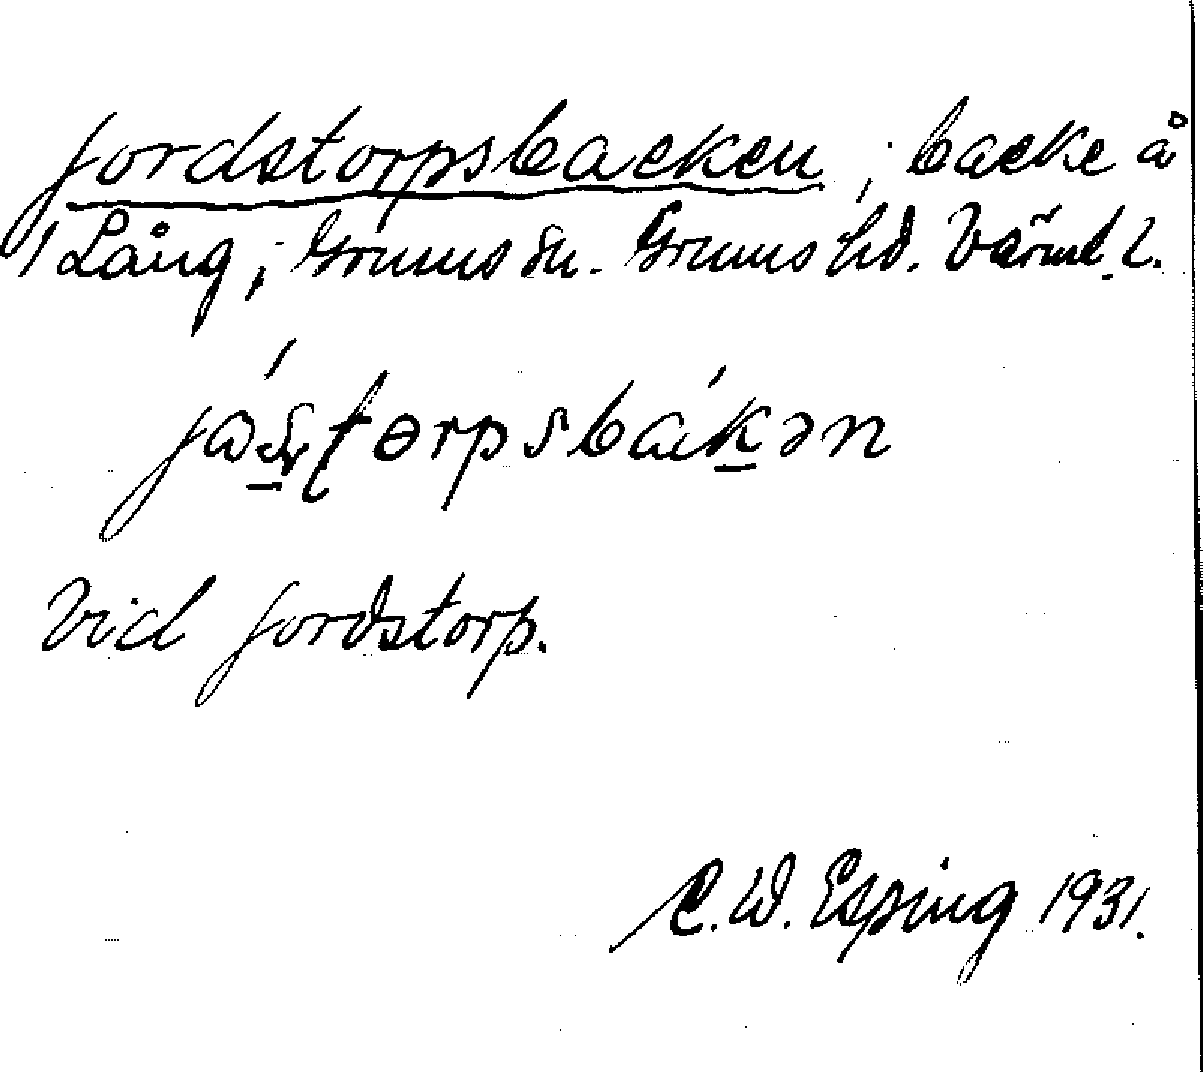 Jordstorpsbacken; backe å
1 Lång; Grums sn. Grums hd. Värml. l.
Vid Jordstorp.
C. W. Esping 1931.